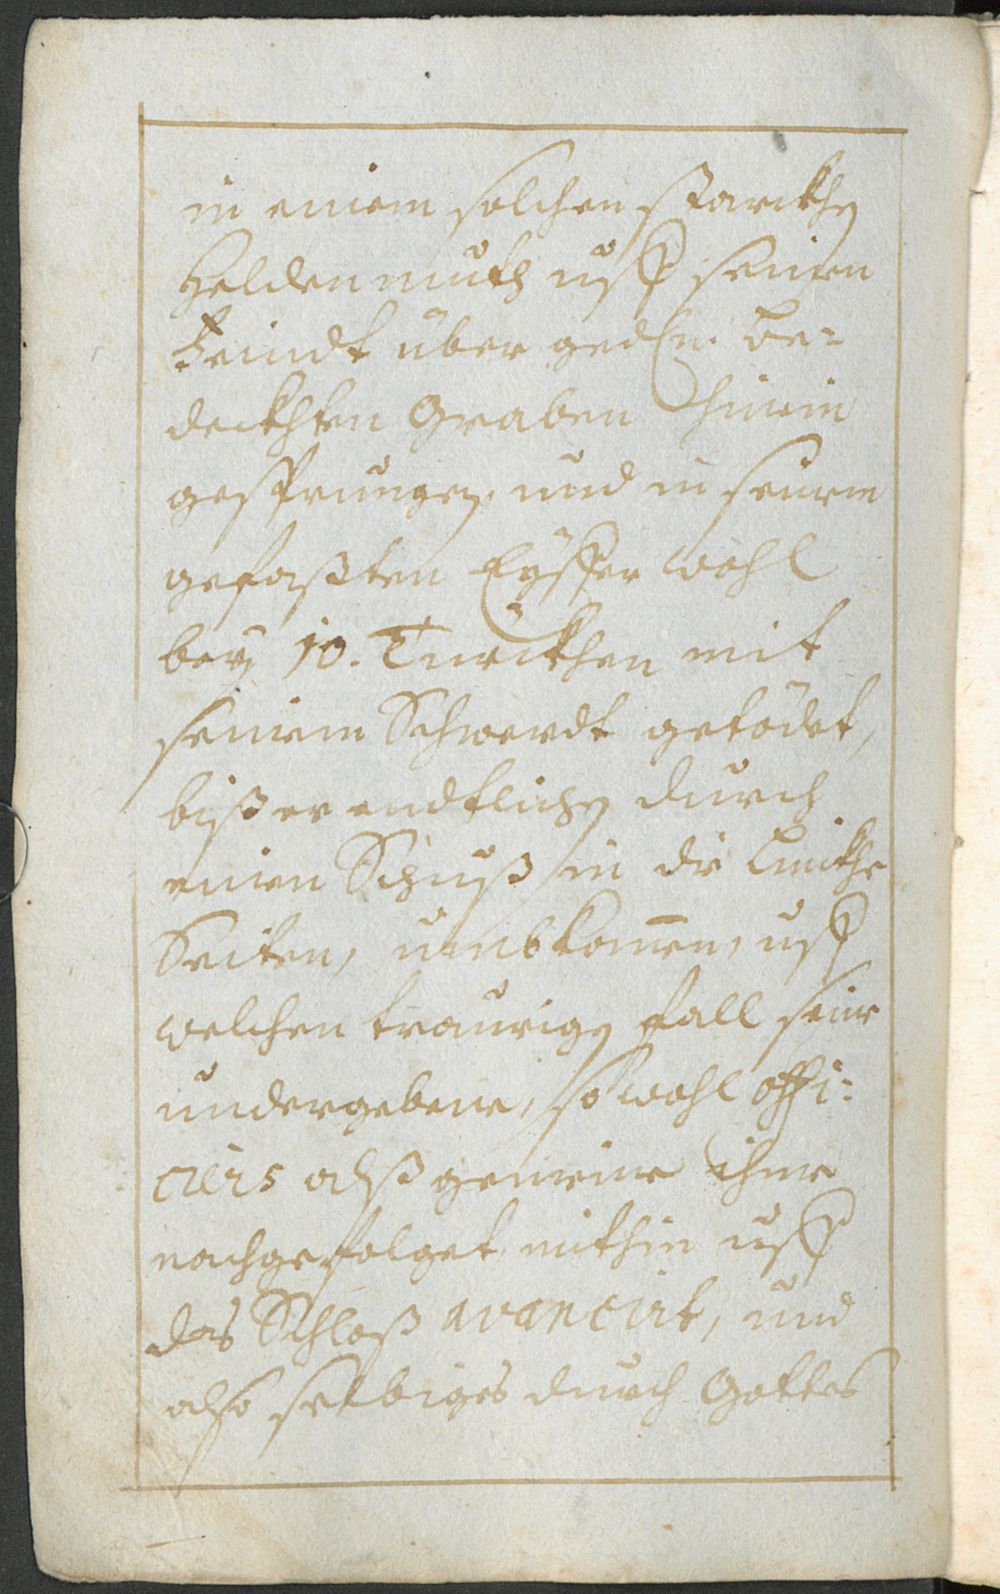 in einem solchen starckhen
Heldenmuth uff seinen
Feindt über gedhn. be-
deckhten Graben hinein
gesprungen. und in seinem
gefaßten Eyffer wohl
bey 10. Türckhen mit
seinem Schwerdt getödet,
biß er endtlichen durch
einen Schuß in die Linckhe
Seiten, umbkomen, uff
welchen traurigen fall seine
undergebene, so wohl offi-
ciers alß gemeine ihme
nachgefolget, mithin uff
das Schloß avancirt, und
also selbiges durch Gottes